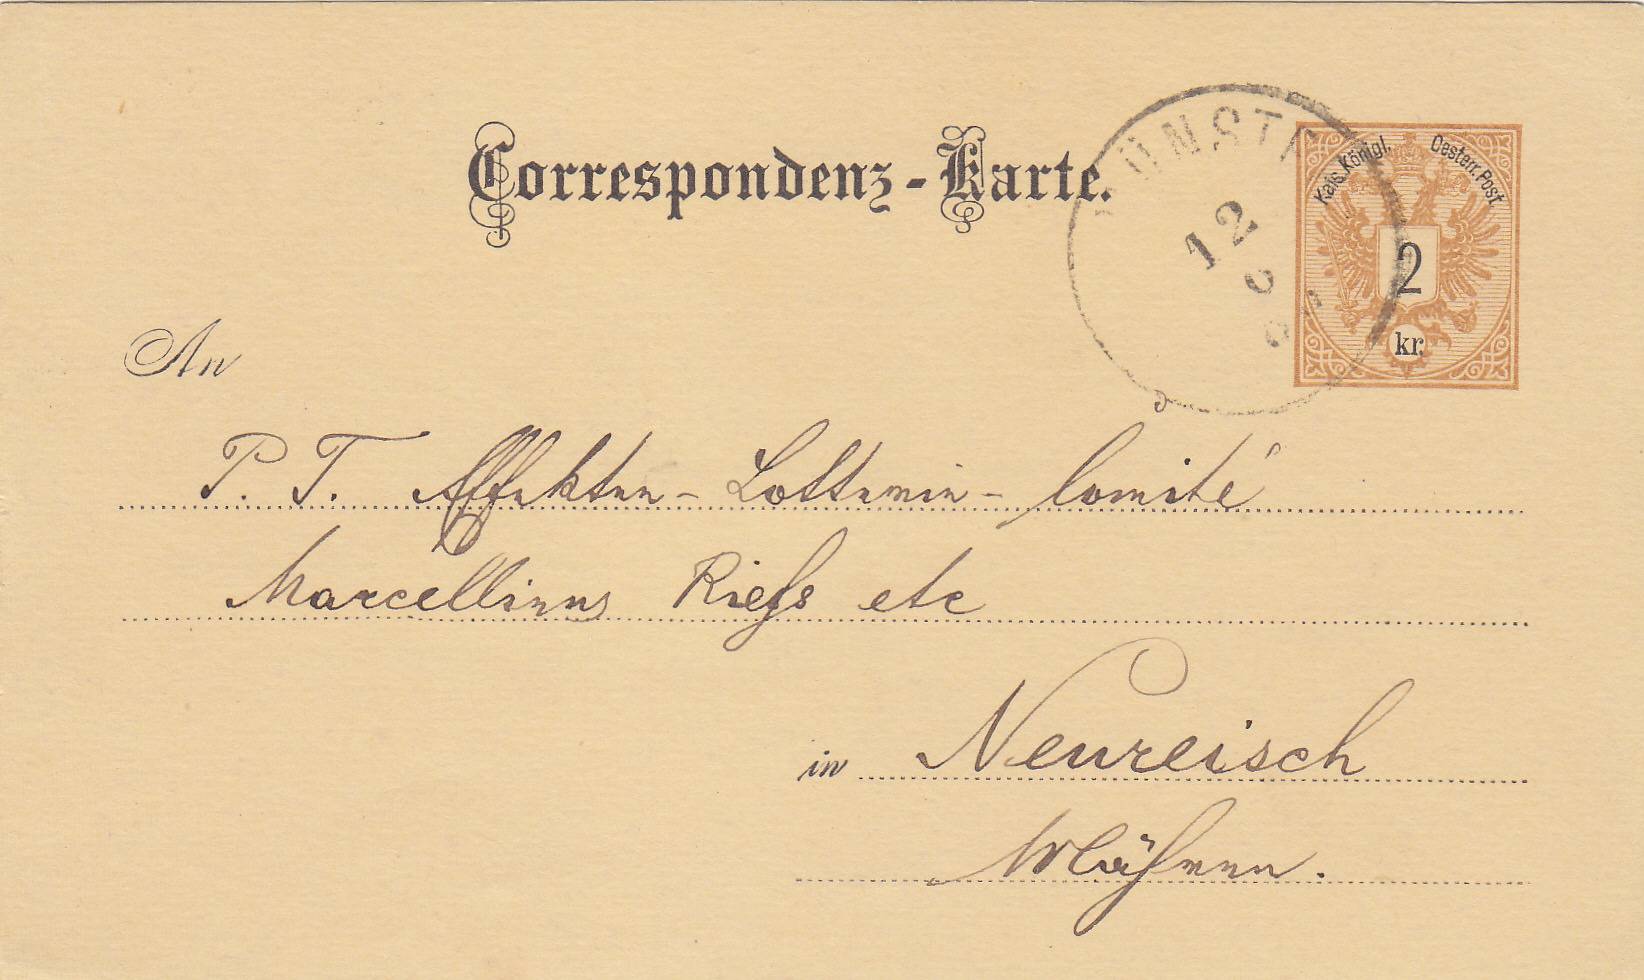 Correspondenz-Karte.
Kais. Königl. Oesterr. Post.
2
kr.
12
An
P. T. Effekten-Lotterie-Comité
Marcellinus Riess etc
in Neureisch
Mähren.